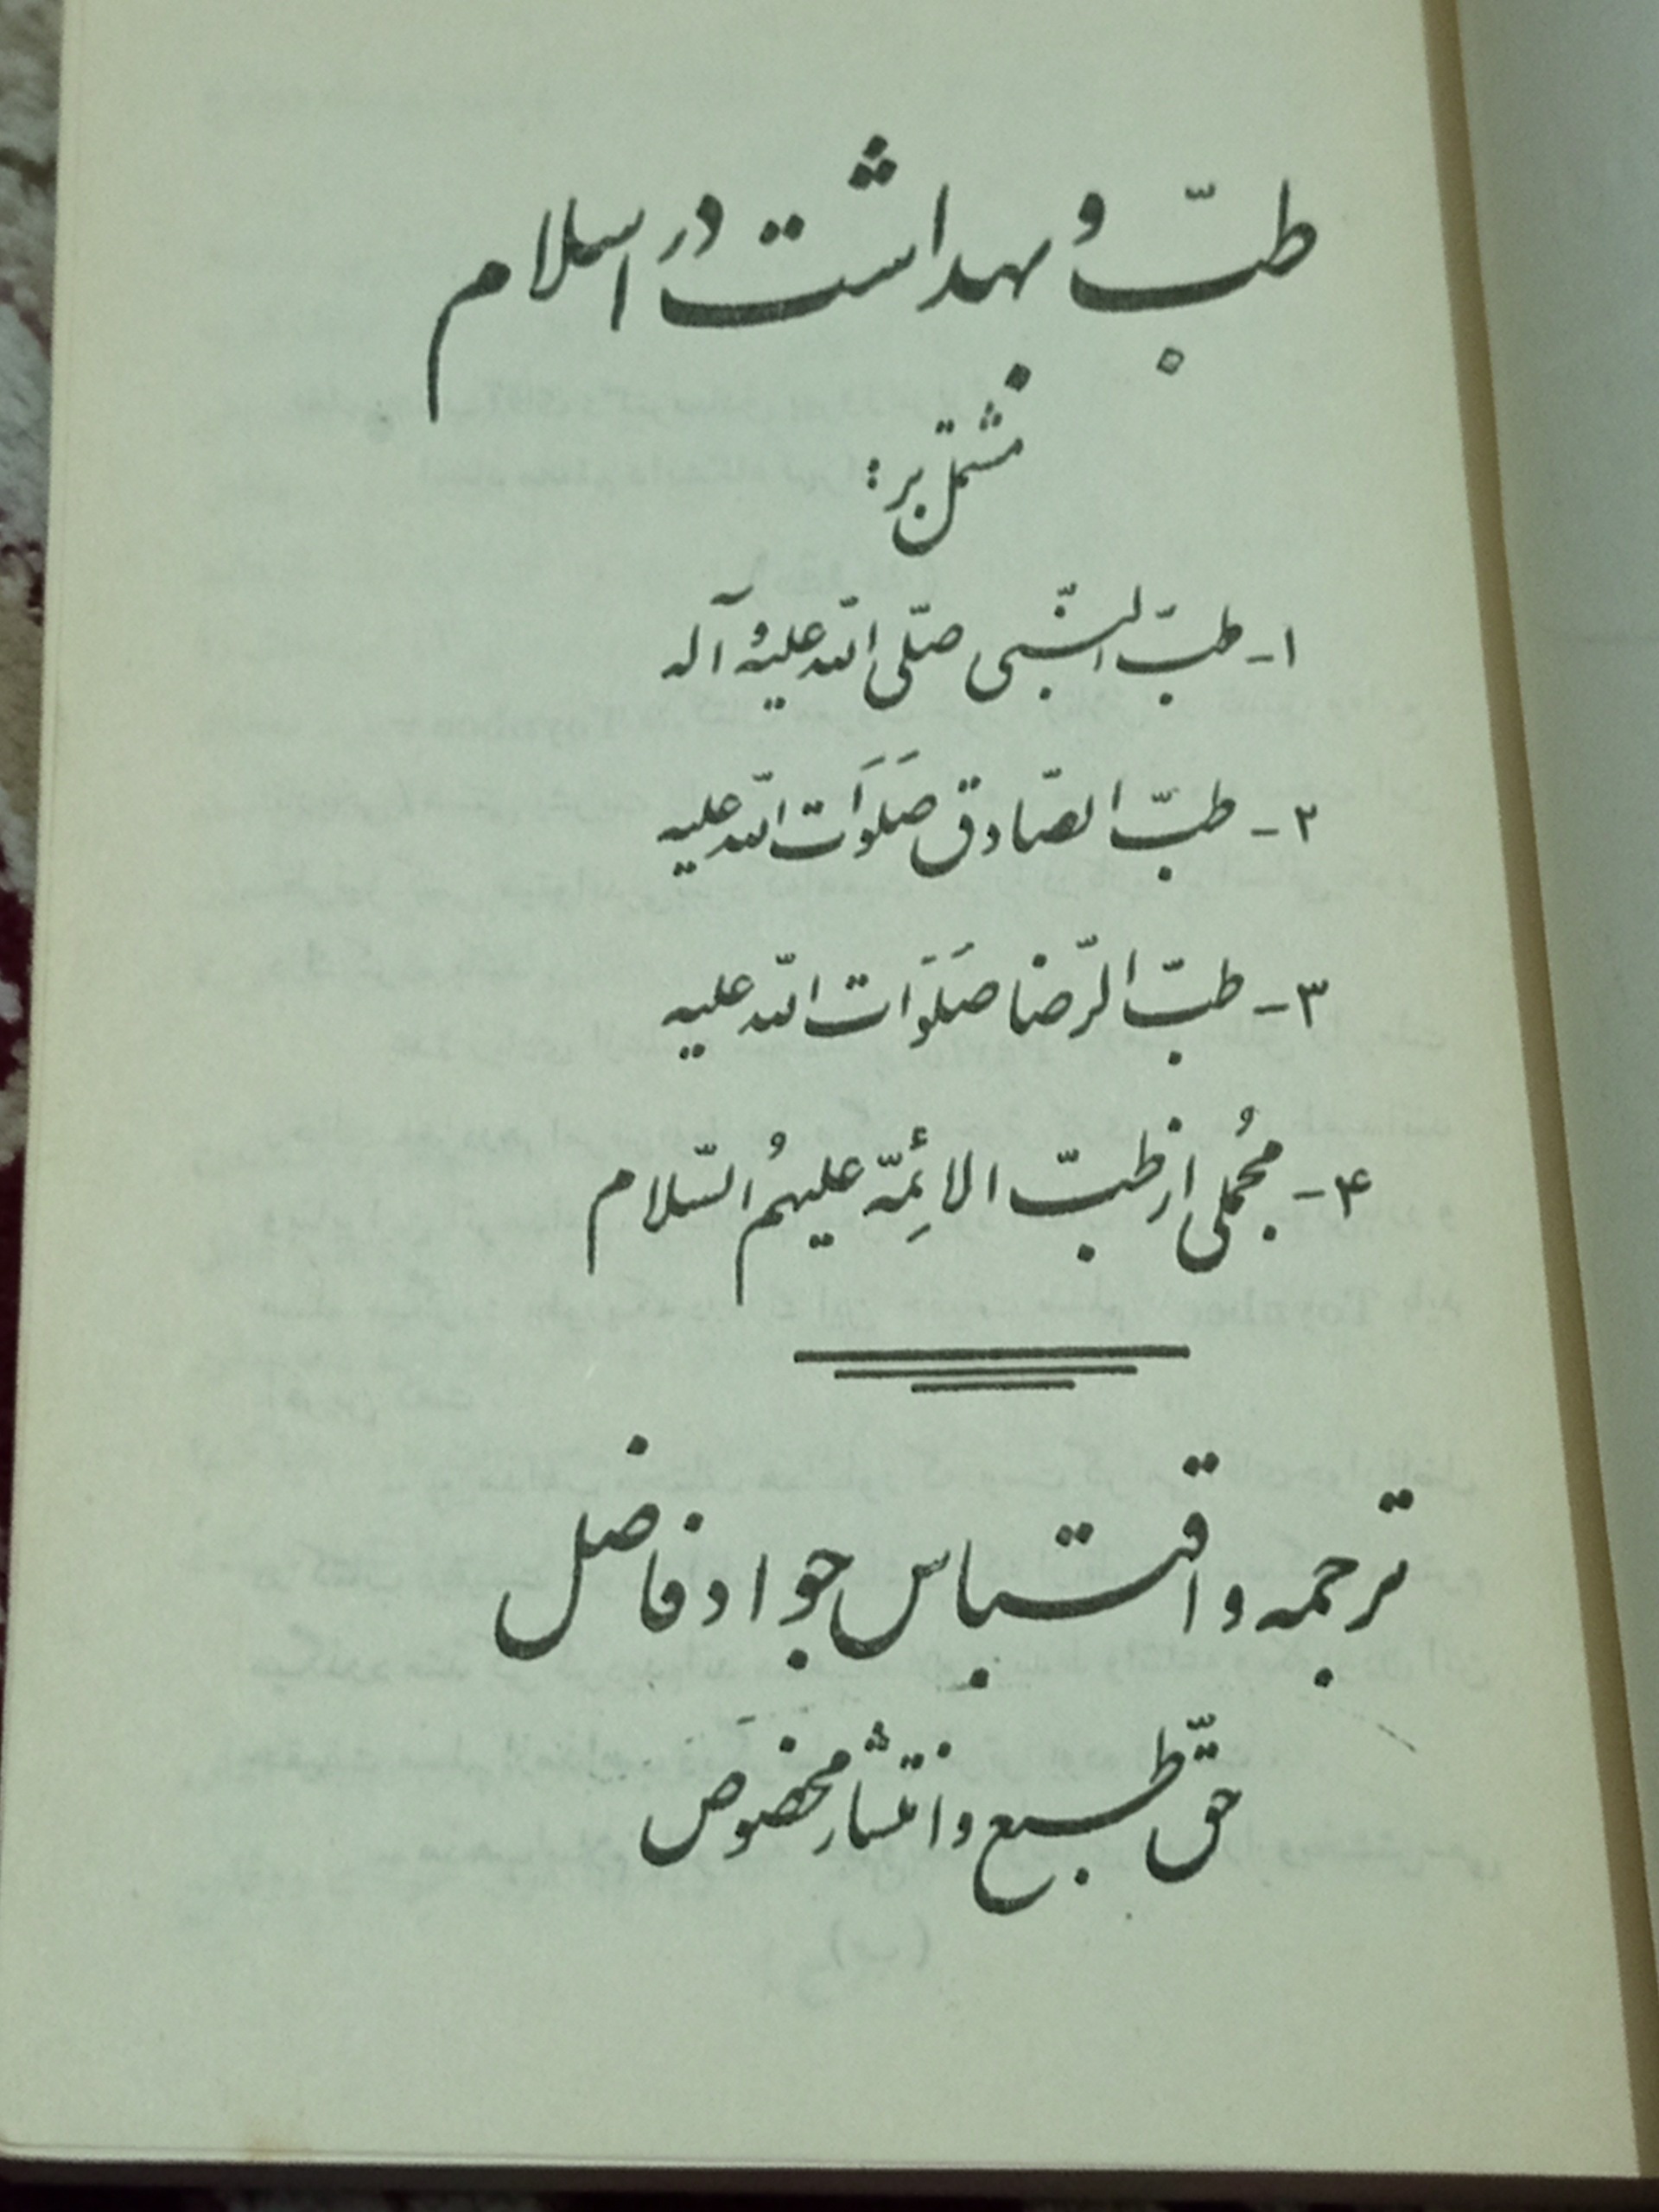 طبّ و بهداشت در اسلام
مشتمل بر :
۱- طبّ النّبی صلّی اللّه علیه و آله
۲- طبّ الصّادق صَلَوَات اللّه علیه
۳- طبّ الرّضا صَلَوَات اللّه علیه
۴- مُجملی از طبّ الائِمّة علیهمُ السّلام
ترجمه و اقتباس جواد فاضل
حقّ طبع و انتشار مخصوص